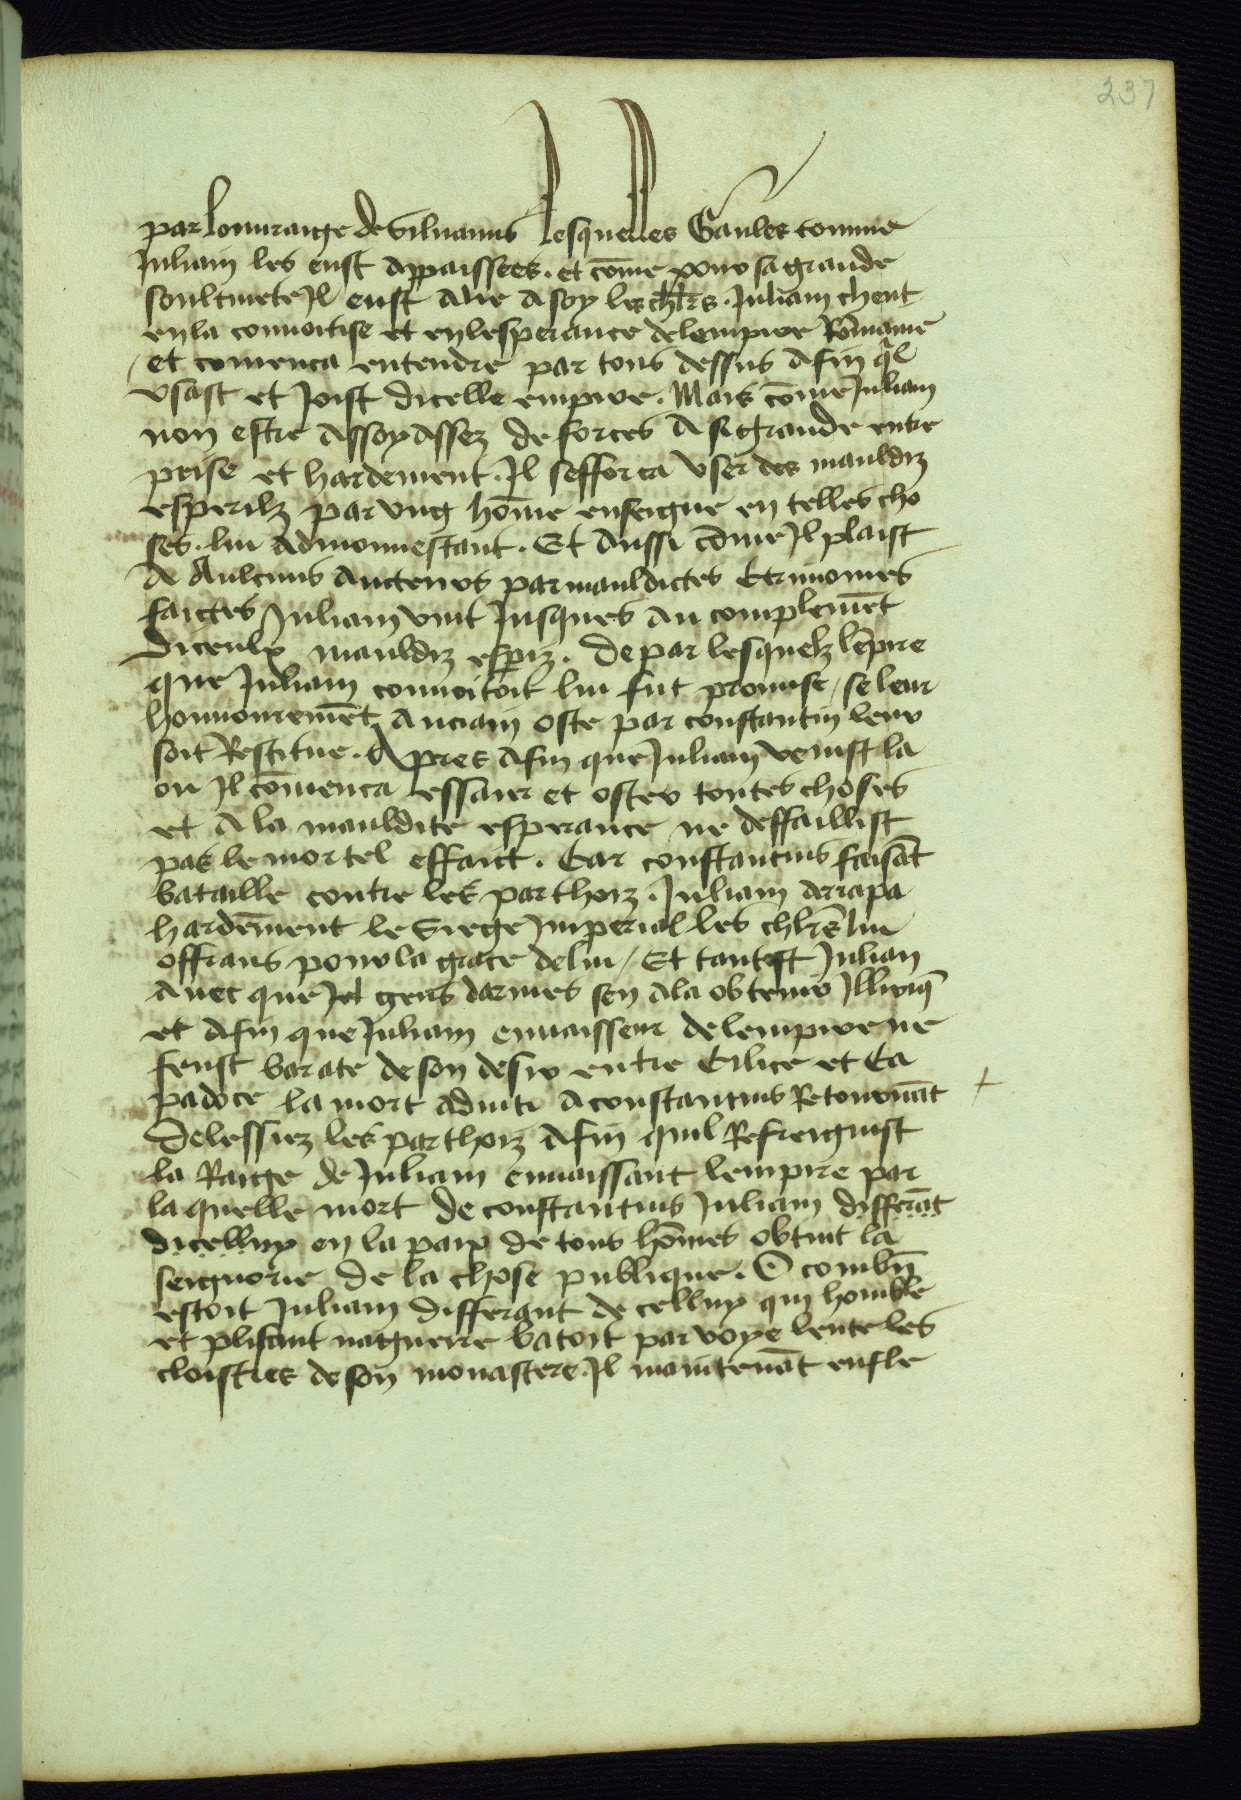 237
par louuraige de siluanus lesquelles Gaules comme
Juliain les eust appaissees. et cōme pour sa grande
soultiuete Jl eust alie a soy les chl̄rs. Juliain cheut
en la conuoitise et en lesperance de lempire Rōmaine
/ et comenca entendre par tous dessus afin q̄l
vsast et Joist dicelle empire. Mais cōme Juliain
non estre assoy assez de forces a si grande entre
prise et hardement. Jl sefforca vser des mauldiz
esperilz par vng hōme enseigne en telles cho
ses. lui admonnestant. Et aussi cōme Jl plaist
a aulcuns aucteurs par mauldictes Cerimonies
faictes Juliain vint Jusques au complemēt
diceulx mauldiz esp̄iz. de par lesquelz lēpire
que Juliain conuoitoit lui fut promise / se leur
honnouremēt anciain oste par constantin leur
soit Restitue. Apres afin que Juliain venist la
ou Jl cōmenca essaier et oster toutes choses
et a la mauldite esperance ne deffaillist
pas le mortel effaict. Car constancius faisāt
bataille contre les parthoiz. Juliain arrapa
hardēment le siege Jmperial les chl̄rs lui
offrans pour la grace de lui / Et tantost Julian
auec que gens darmes sen ala obtenir Jlliriq̄
et afin que Juliain enuaisseur de lempire ne
feust barate de son desir entre Cilice et Ca
padoce la mort aduint a constancius Retournāt
delessiez les parthoiz afin quil Refreignist
la Raige de Juliain enuaissant lempire par
la quelle mort de constantius Juliain differāt
dicelluy en la paix de tous hōmes obtint la
seignorie de la chose publique. O combn̄
estoit Juliain differant de celluy qui humble
et plisant naguerre batoit par voye lente les
cloistres de son monastere. Jl maintenāt enfle